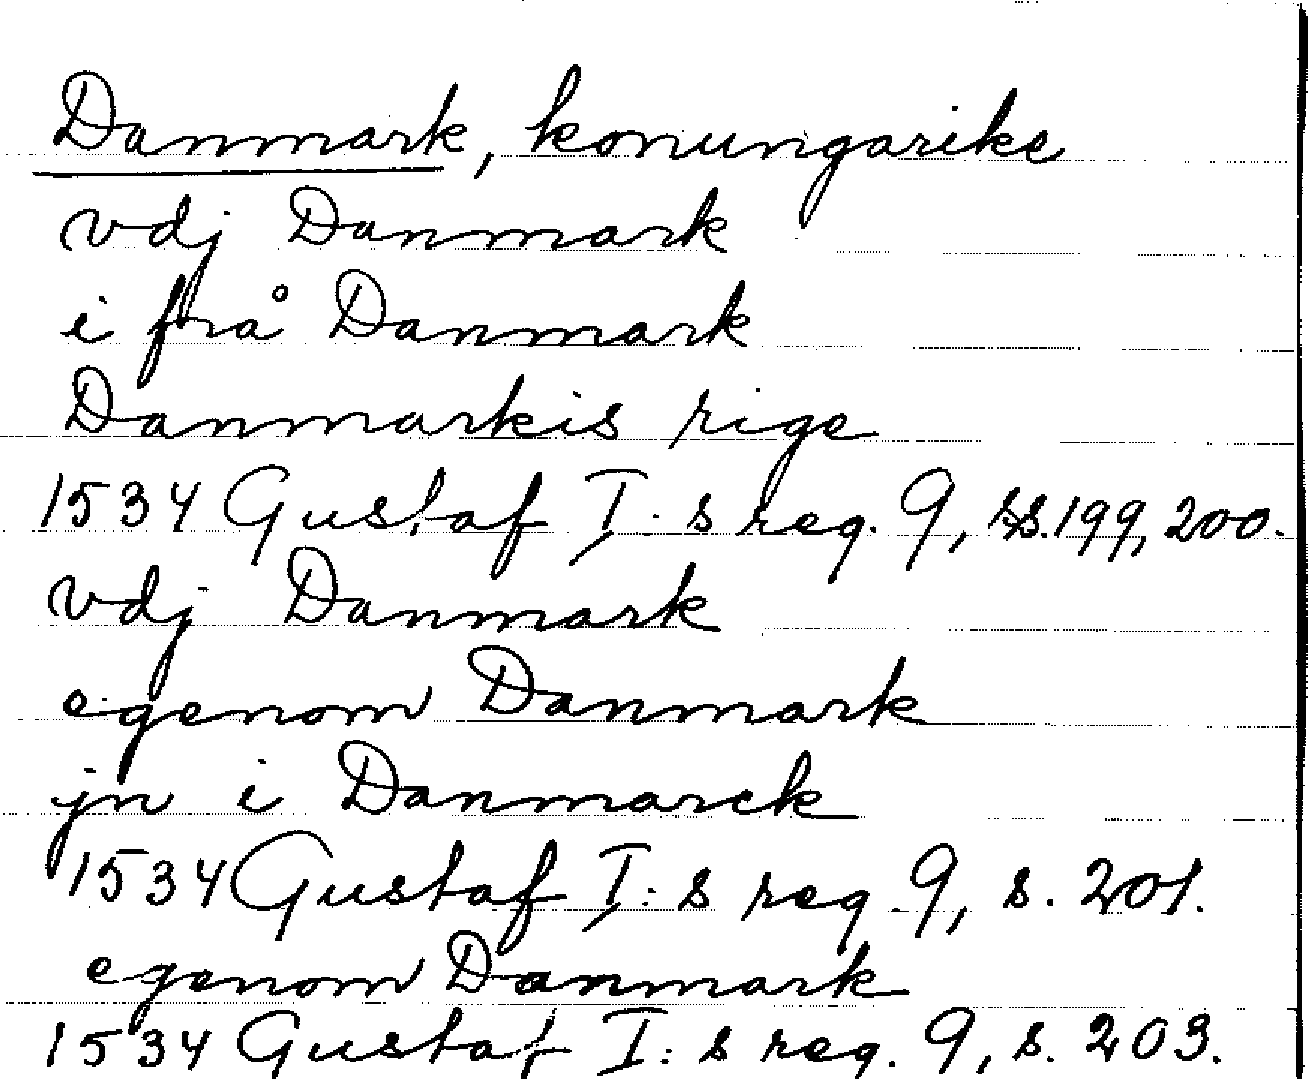 Danmark, konungarike
vdj Danmark
i frå Danmark
Danmarkis rige
1534 Gustaf I: s reg. 9, ss. 199, 200.
vdj Danmark
egenom Danmark
jn i Danmarck
1534 Gustaf I: s reg. 9, s. 201.
egenom Danmark
1534 Gustaf I: s reg. 9, s. 203.